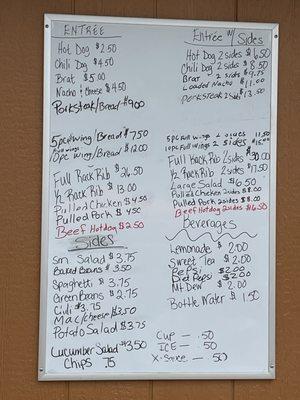 ENTREE
Hot Dog $2.50
Chili Dog $4.50
Brat $5.00
Nacho & Cheese $4.50
Porksteak/Bread $9.00
5pc wing/Bread $7.50
Full wings
10pc Wing/Bread $12.00
Full Rack Rib $26.50
1/2 Rack Rib $13.00
Pulled Chicken $4.50
Pulled Pork $4.50
Beef Hotdog $2.50
Sides
Sm. Salad $3.75
Baked Beans $3.50
Spaghetti $3.75
Green Beans $2.75
Chili $3.75
Mac/cheese $3.50
Potato Salad $3.75
Cucumber Salad $3.50
Chips .75
Entree w/ Sides
Hot Dog 2 sides $6.50
Chili Dog 2 sides $8.50
Brat 2 sides $9.75
Loaded Nacho $11.00
Porksteak 2 sides $13.00
5pc Full wings 2 sides 11.50
10pc Full wings 2 sides
Full Rack Rib 2 sides $30.00
1/2 Rack Rib 2 sides $17.50
Large Salad $6.50
Pulled Chicken 2 sides $8.00
Pulled Pork 2 sides $8.00
Beef Hotdog 2 sides $6.50
Beverages
Lemonade $2.00
Sweet Tea $2.00
Pepsi $2.00
Diet Pepsi $2.00
Mt Dew $2.00
Bottle Water $1.50
Cup - .50
ICE - .50
X-Sauce - .50